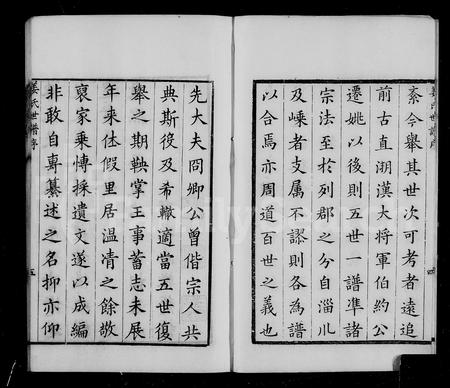 紊今舉其世次可考者遠追
前古直溯漢大將軍伯約公
遷姚以後則五世一譜準諸
宗法至於列郡之分自淄川
及嵊者支屬不謬則各為譜
以合焉亦周道百世之義也
姜氏世譜序
五
先大夫冏卿公曾偕宗人共
典斯役及希轍適當五世復
舉之期鞅掌王事蓄志未展
年來休假里居温凊之餘敬
裒家乗博採遺文遂以成編
非敢自專纂述之名抑亦仰